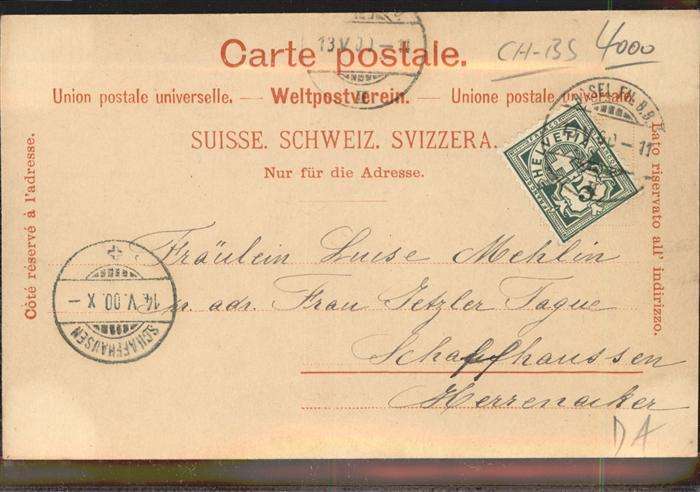 Carte postale.
13 V 00 - 11
CH-BS 4000
Union postale universelle. — Weltpostverein. — Unione postale universale.
SUISSE. SCHWEIZ. SVIZZERA.
Nur für die Adresse.
Côté réservé à l'adresse.
Lato riservato all' indirizzo.
HELVETIA
5
- 11
Fräulein Luise Mehlin
adr. Frau Jetzler Tague
Schaffhaussen
Herrenacker
14. V. 00. X -
SCHAFFHAUSEN
DA